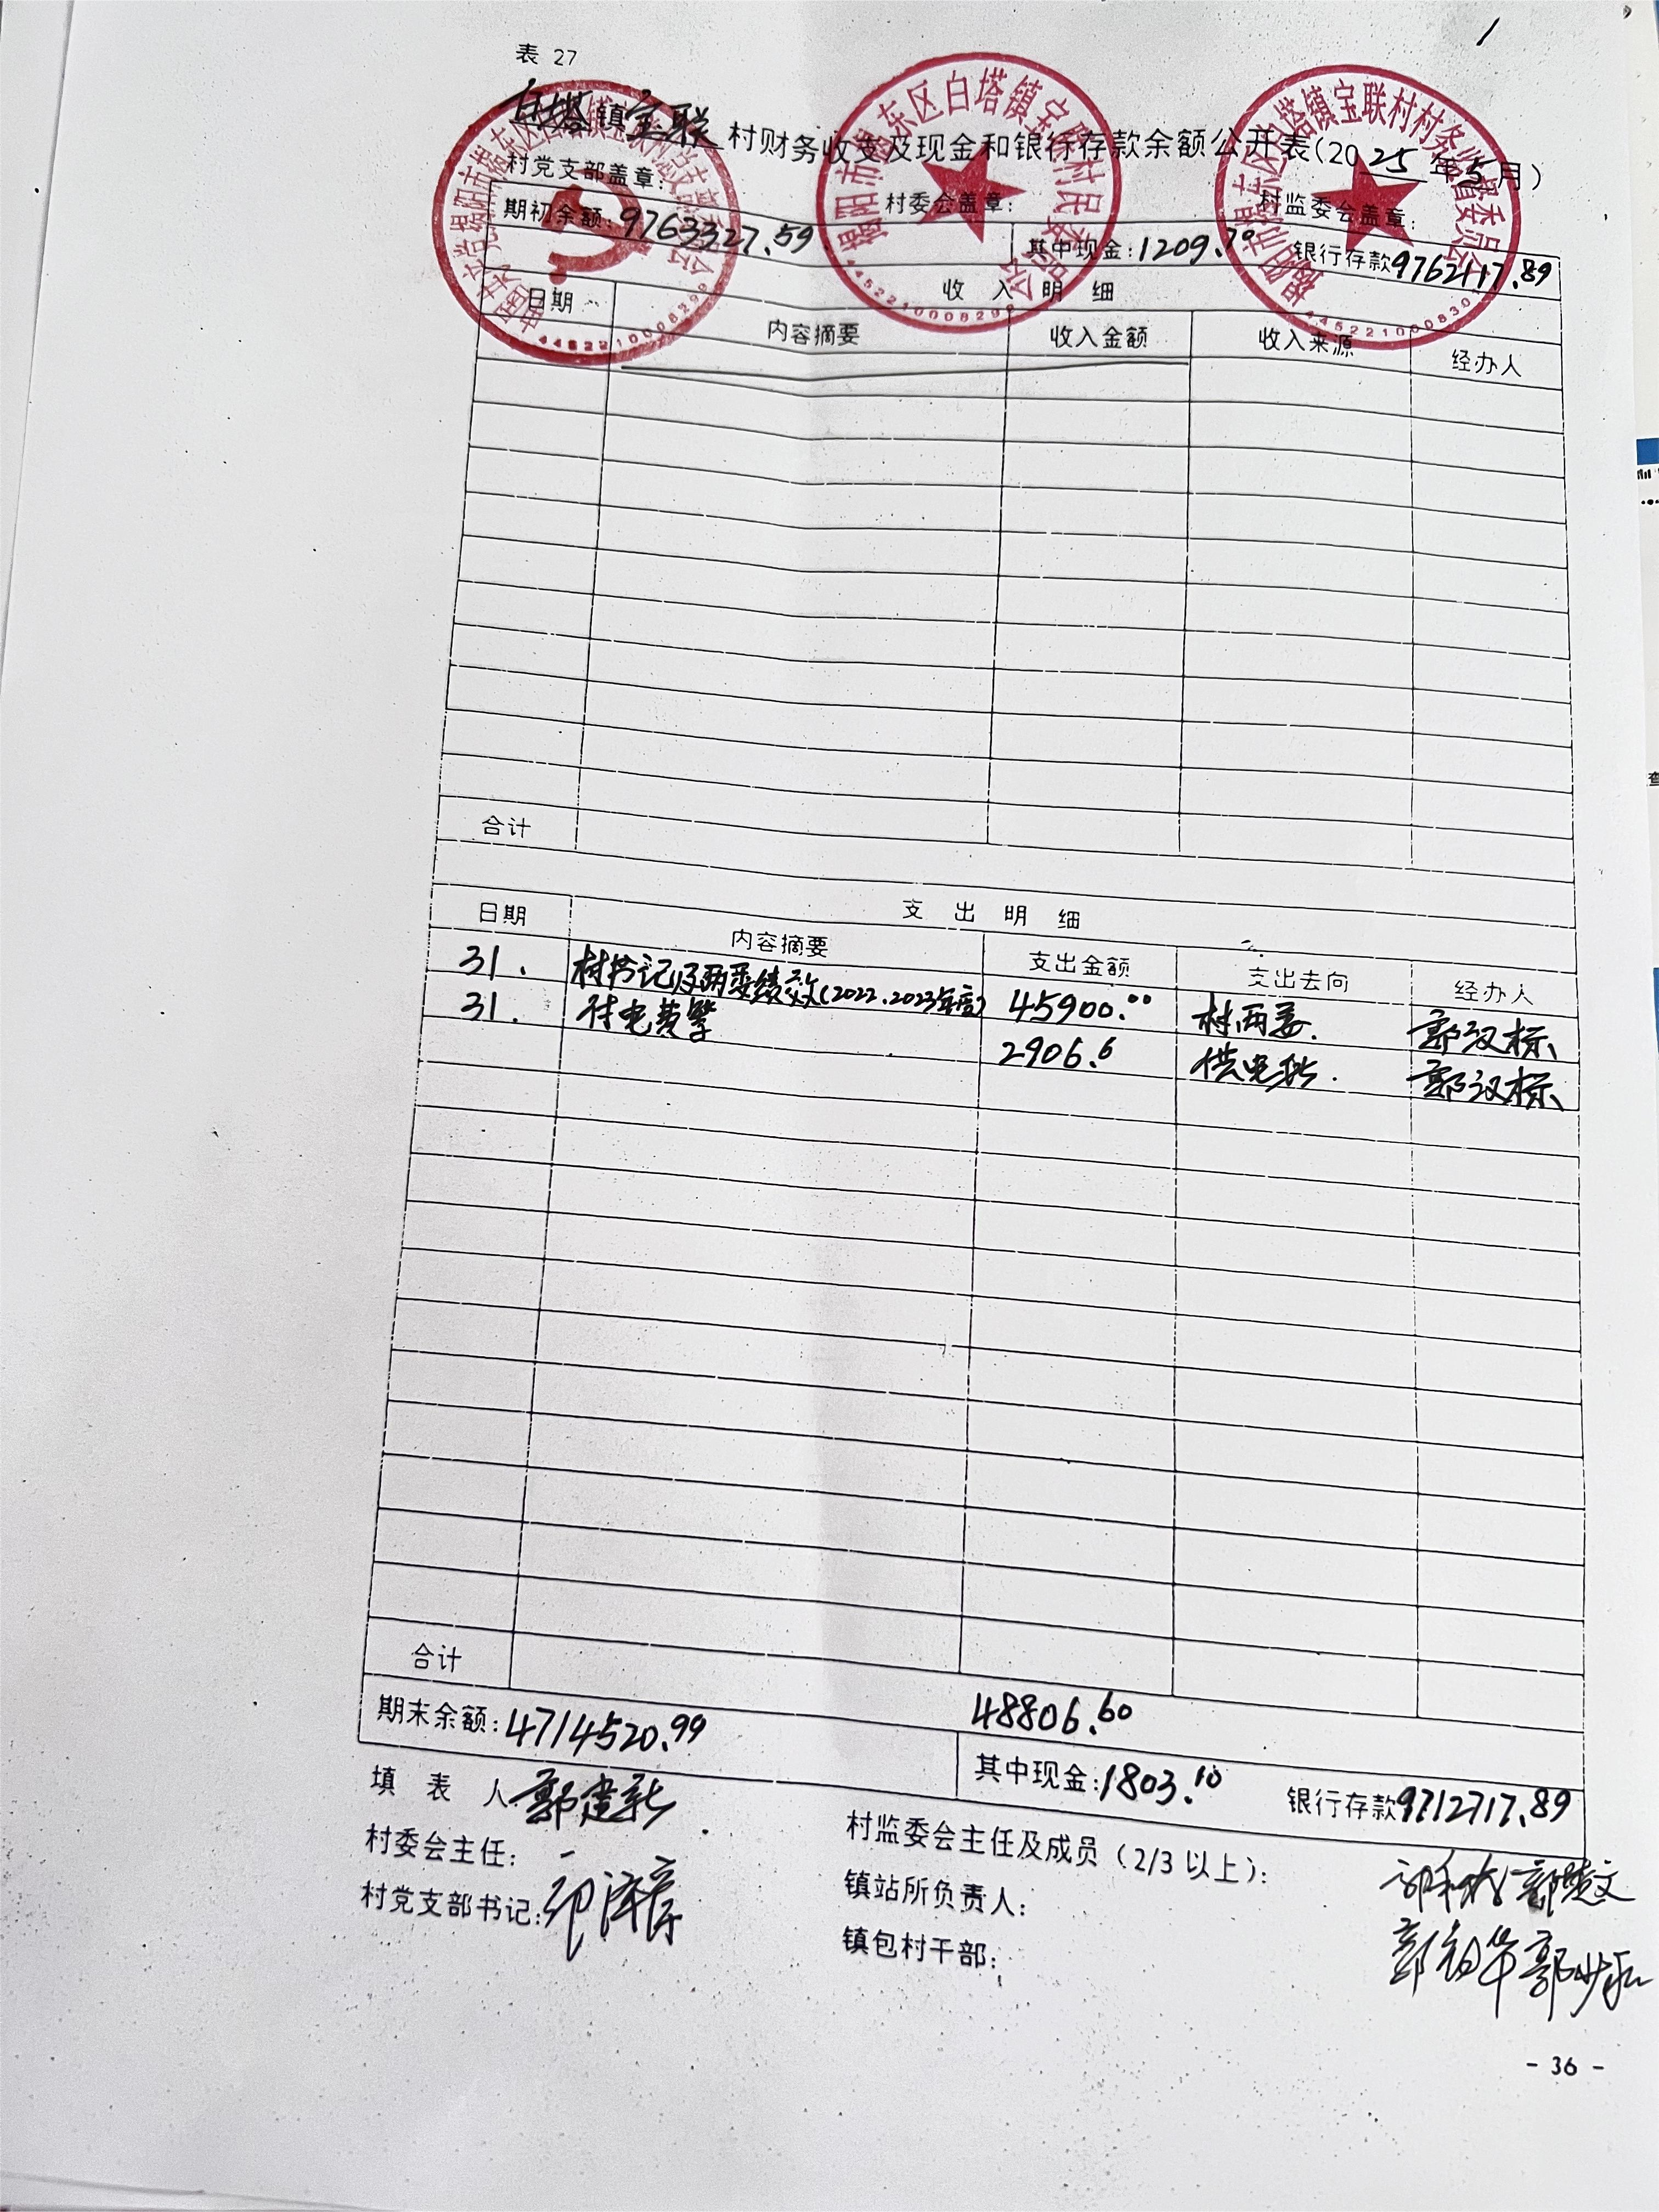 1
表 27
白塔镇宝联村财务收支及现金和银行存款余额公开表(2025年5月)
村党支部盖章: 村委会盖章: 村监委会盖章:
期初余额:9763327.59 其中现金:1209.70 银行存款9762117.89
收 入 明 细
日期 内容摘要 收入金额 收入来源 经办人
合计
支 出 明 细
日期 内容摘要 支出金额 支出去向 经办人
31. 村书记及两委绩效(2022.2023年度) 45900.00 村两委. 郭汉标
31. 付电费等 2906.6 供电所. 郭汉标
合计 48806.60
期末余额:4714520.99 其中现金:1803.10 银行存款9712717.89
填 表 人:郭建新
村委会主任: 村监委会主任及成员(2/3以上):
村党支部书记: 镇站所负责人:
镇包村干部:
- 36 -
揭阳市揭东区白塔镇宝联村村民委员会
揭阳市揭东区白塔镇宝联村村务监督委员会